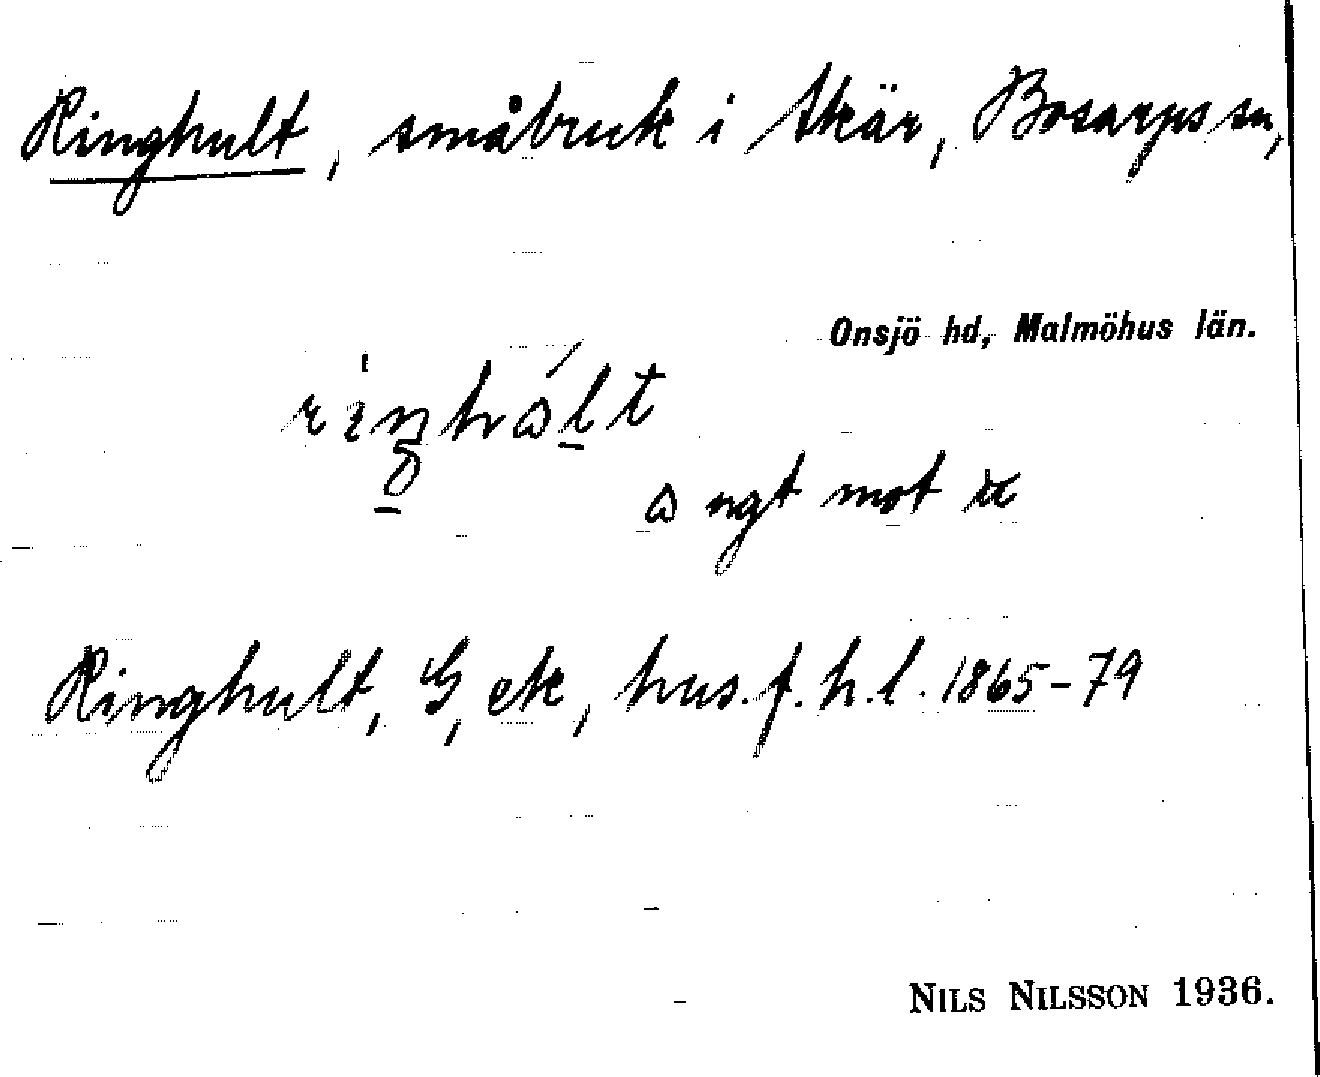 Ringhult, småbruk i Skär, Bosarps sn,
Onsjö hd, Malmöhus län.
ngt mot
Ringhult, G, ek, hus. f. h. l. 1865-79
NILS NILSSON 1936.